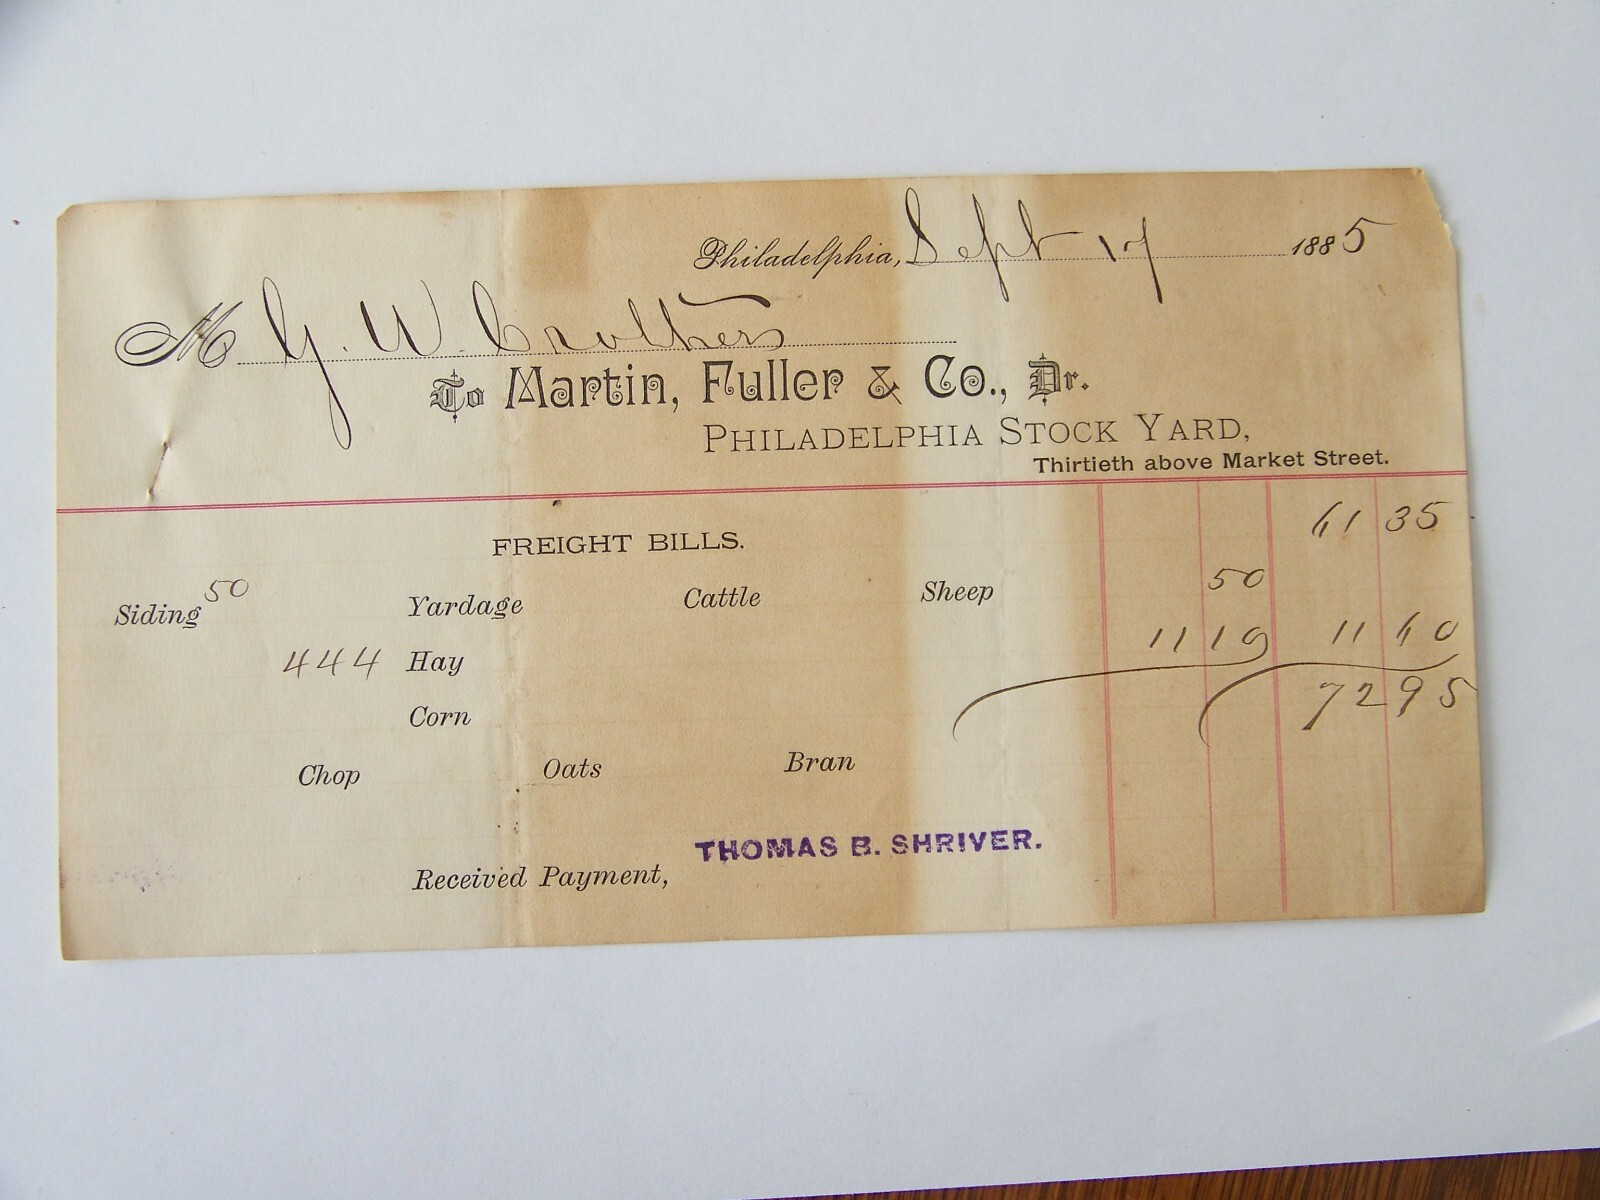 Philadelphia, Sept 17 1885
M G. W. Crothers
To Martin, Fuller & Co., Dr.
PHILADELPHIA STOCK YARD,
Thirtieth above Market Street.
FREIGHT BILLS. 61 35
Siding 50 Yardage Cattle Sheep 50
444 Hay 11 10 11 60
Corn 72 95
Chop Oats Bran
Received Payment, THOMAS B. SHRIVER.